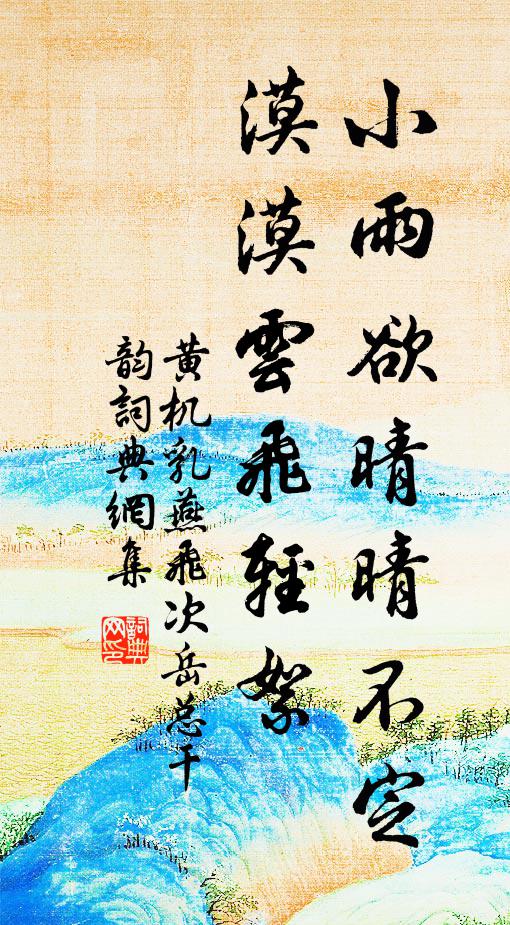 小雨欲晴晴不定
漠漠雲飛輕絮
黄机乳燕飛次岳总干
韵詞典網集
詞典网印